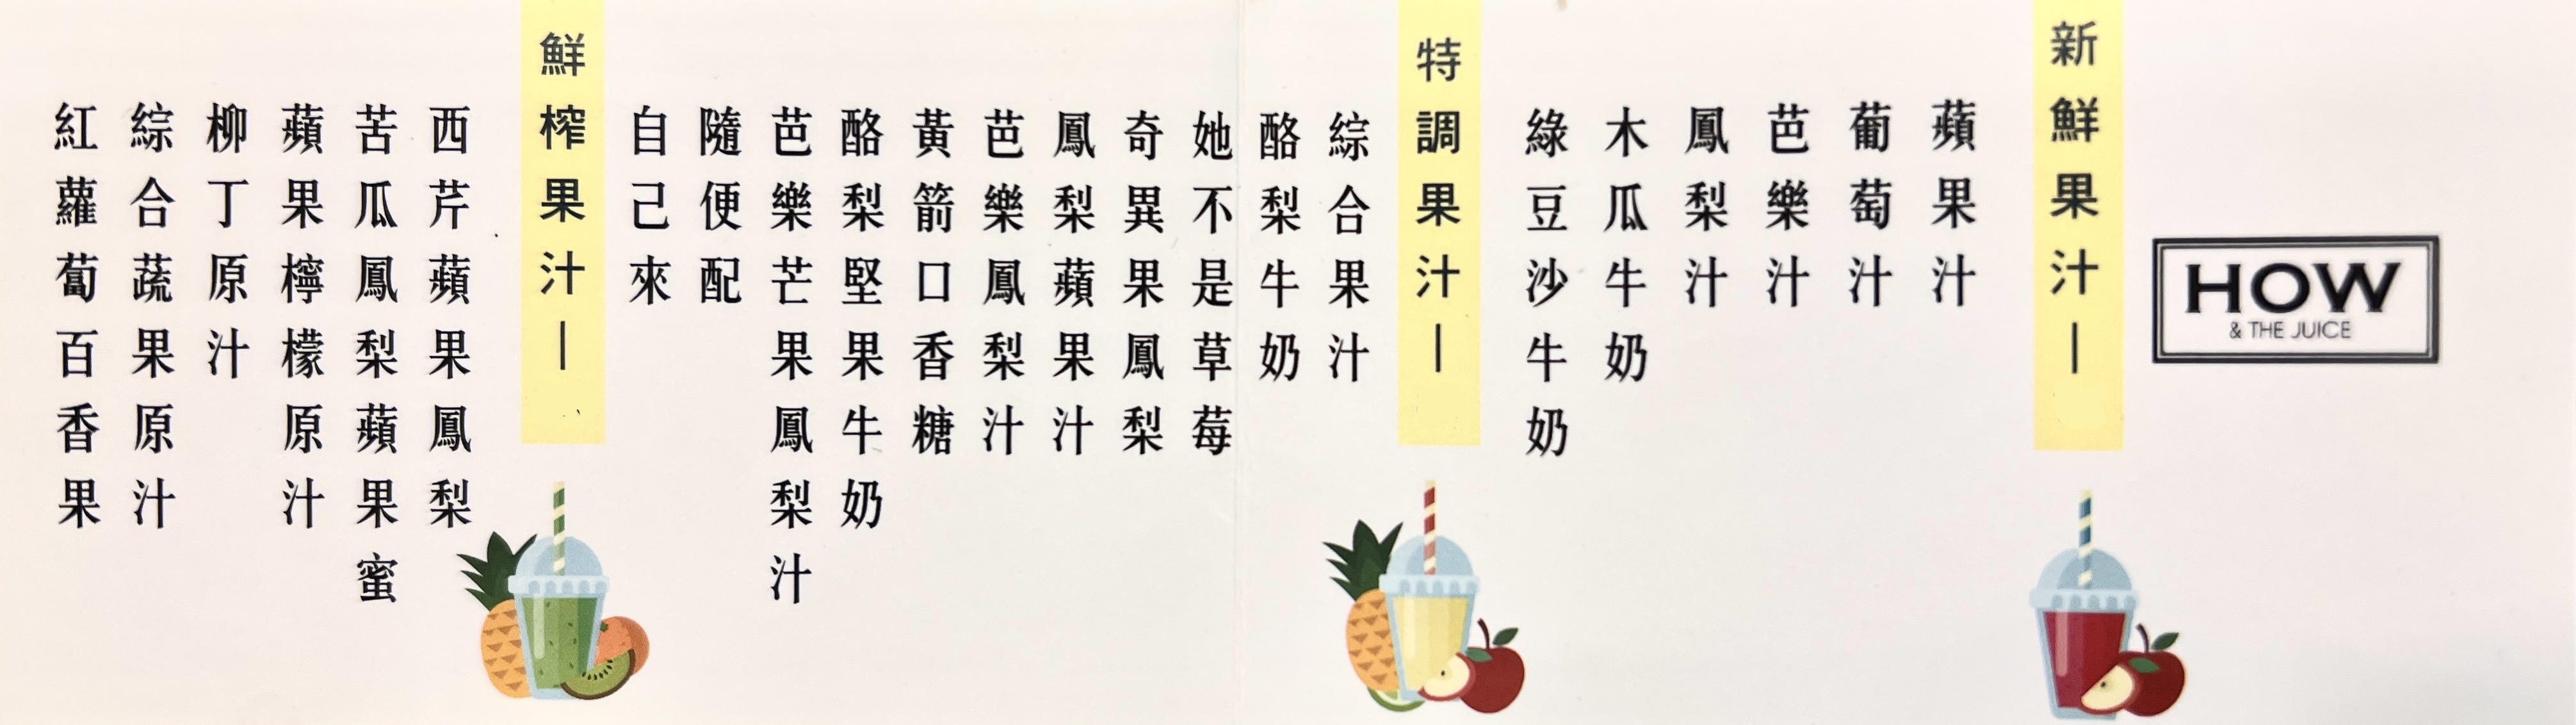 HOW
& THE JUICE
新鮮果汁｜
蘋果汁
葡萄汁
芭樂汁
鳳梨汁
木瓜牛奶
綠豆沙牛奶
特調果汁｜
綜合果汁
酪梨牛奶
她不是草莓
奇異果鳳梨
鳳梨蘋果汁
芭樂鳳梨汁
黃箭口香糖
酪梨堅果牛奶
芭樂芒果鳳梨汁
隨便配
自己來
鮮榨果汁｜
西芹蘋果鳳梨
苦瓜鳳梨蘋果蜜
蘋果檸檬原汁
柳丁原汁
綜合蔬果原汁
紅蘿蔔百香果